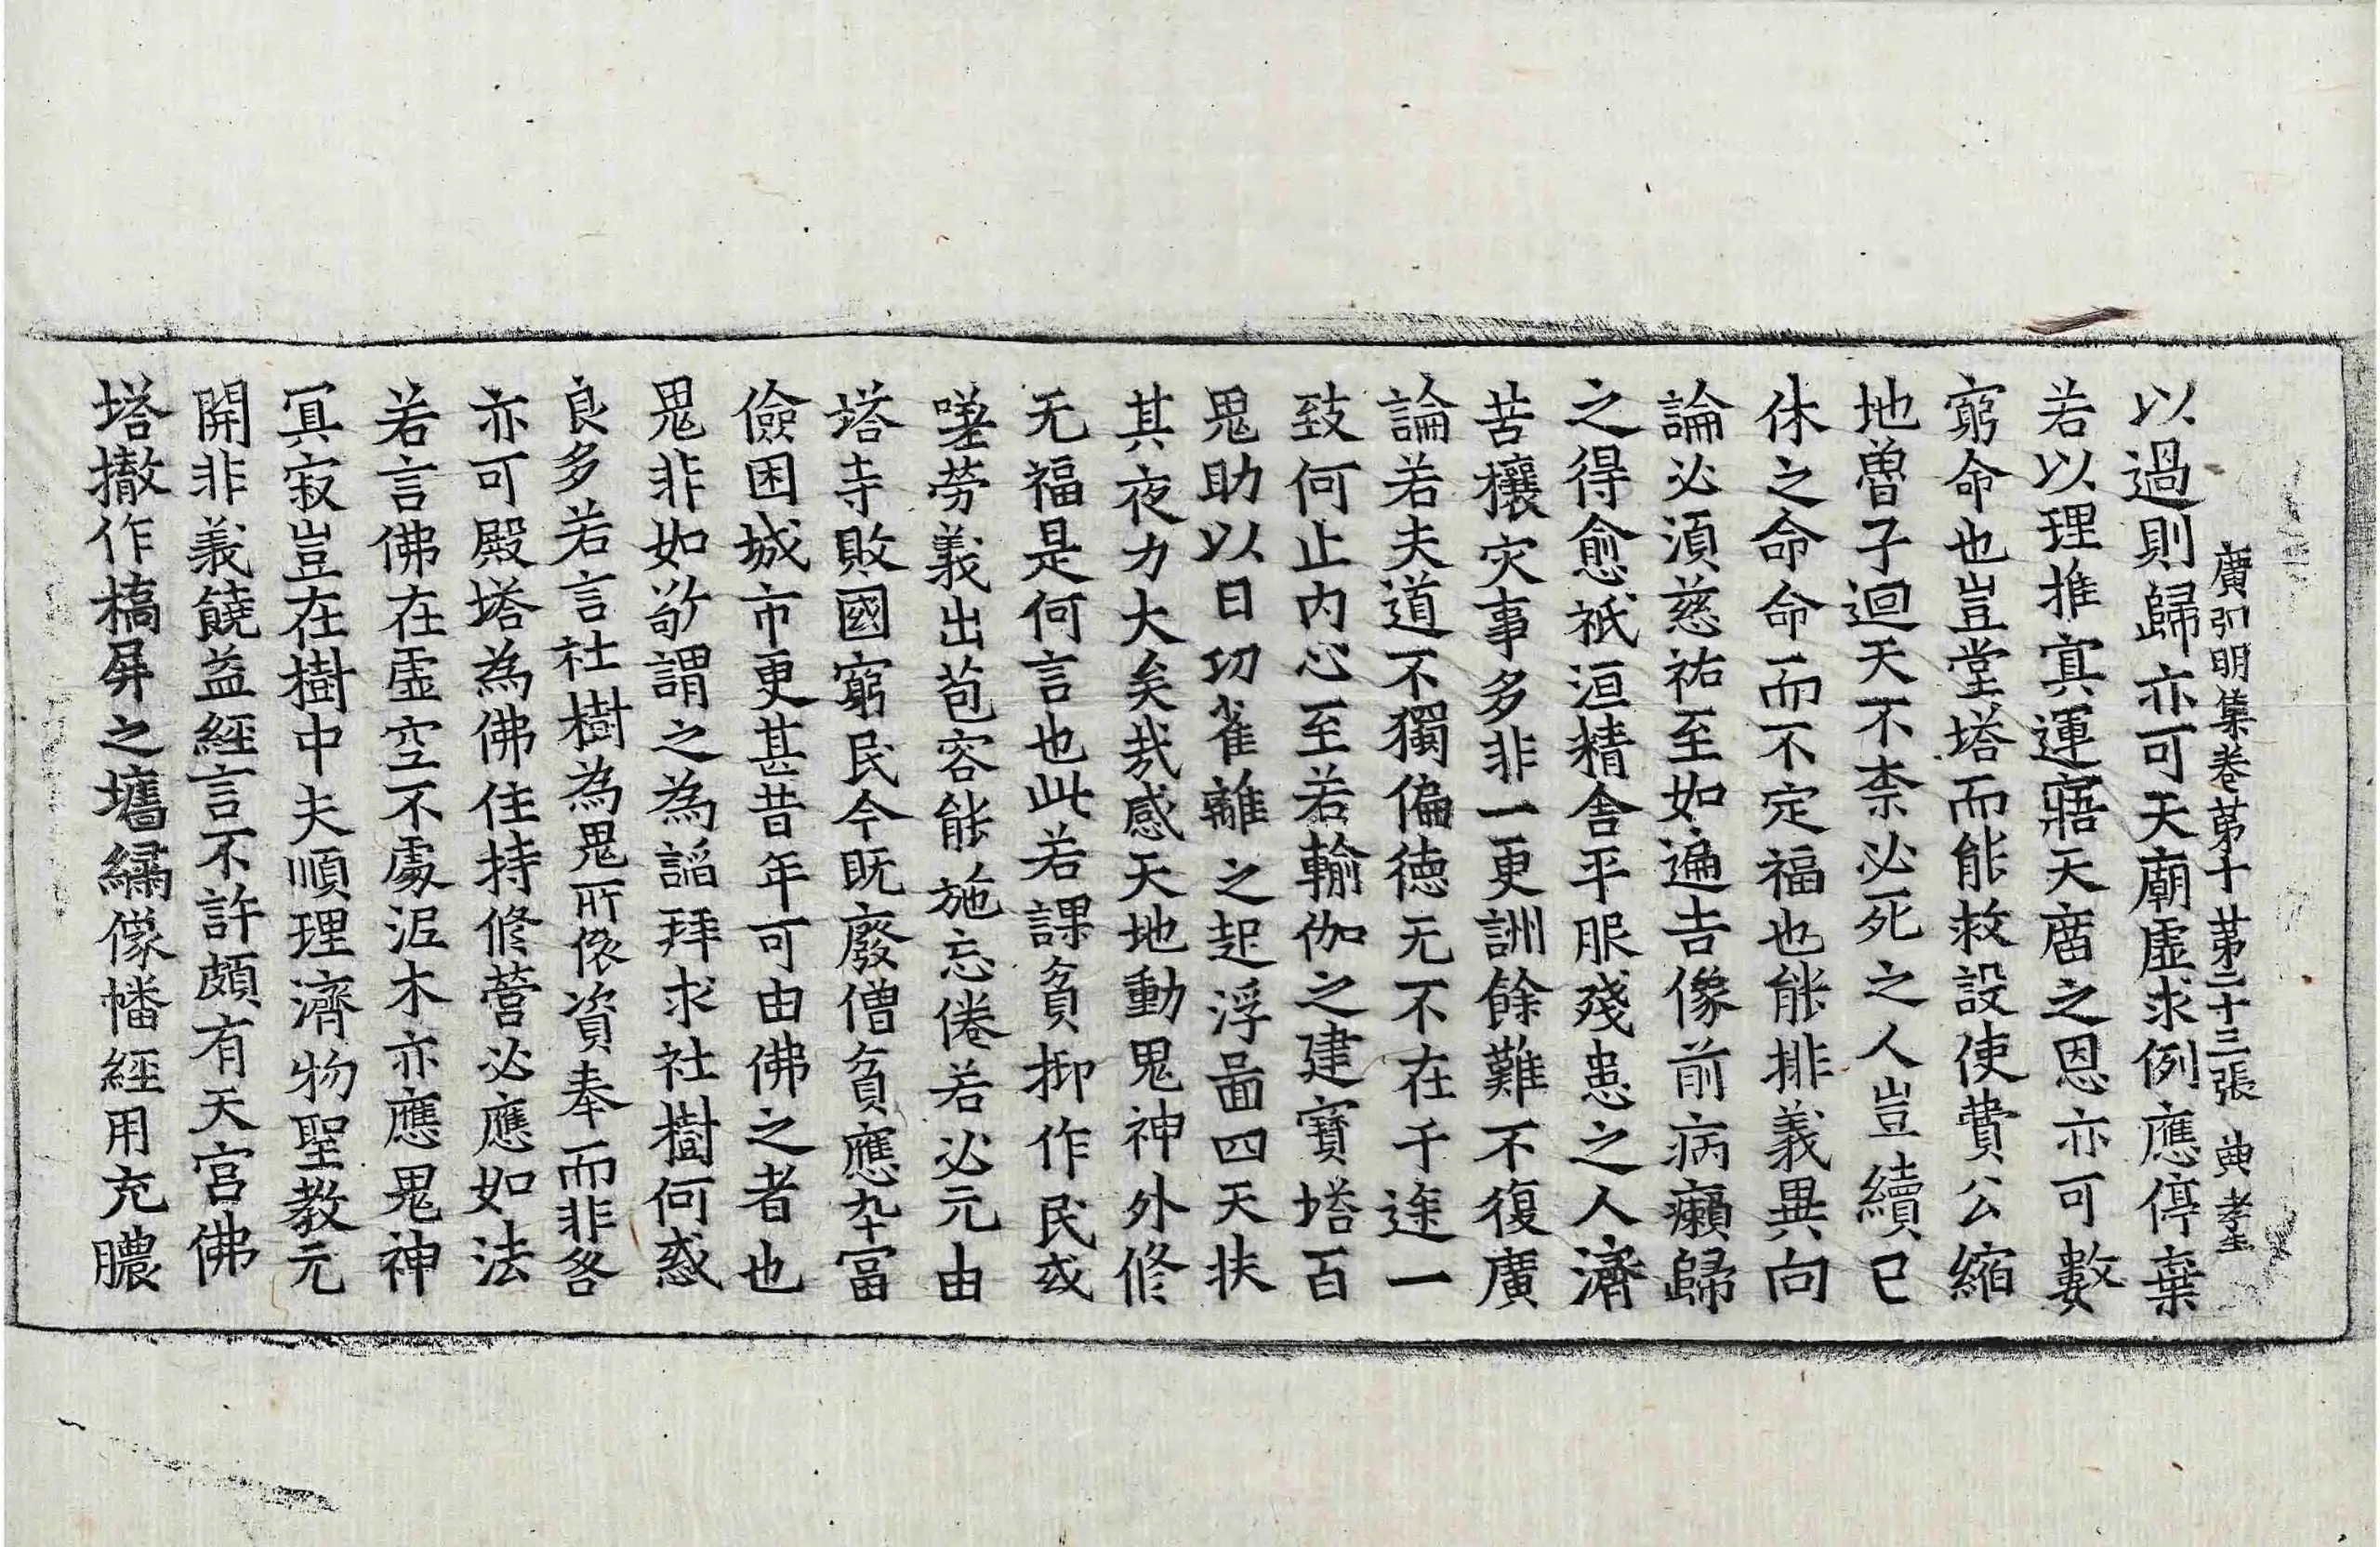 廣弘明集卷第十 第二十三張 典 孝至
以過則歸亦可天廟虛求例應停棄
若以理推冥運寤天庿之恩亦可數
窮命也豈堂塔而能救設使費公縮
地魯子迴天不柰必死之人豈續已
休之命命而不定福也能排義異向
論必湏慈祐至如遍吉像前病癩歸
之得愈祇洹精舍平服殘患之人濟
苦攘灾事多非一更訓餘難不復廣
論若夫道不獨偏德无不在千途一
致何止內心至若輸伽之建寶塔百
鬼助以日功雀離之起浮啚四天扶
其夜力大矣㢤感天地動鬼神外修
无福是何言也此若課貧抑作民或
嗟勞義出苞容能施忘倦若必元由
塔寺敗國窮民今既廢僧貧應卒冨
儉困城市更甚昔年可由佛之者也
鬼非如敬謂之為謟拜求社樹何惑
良多若言社樹為鬼所依資奉而非咎
亦可殿塔為佛住持修營必應如法
若言佛在虛空不處泥木亦應鬼神
冥寂豈在樹中夫順理濟物聖教元
開非義饒益經言不許頗有天宮佛
塔撤作橋屏之墻繡像幡經用充膿